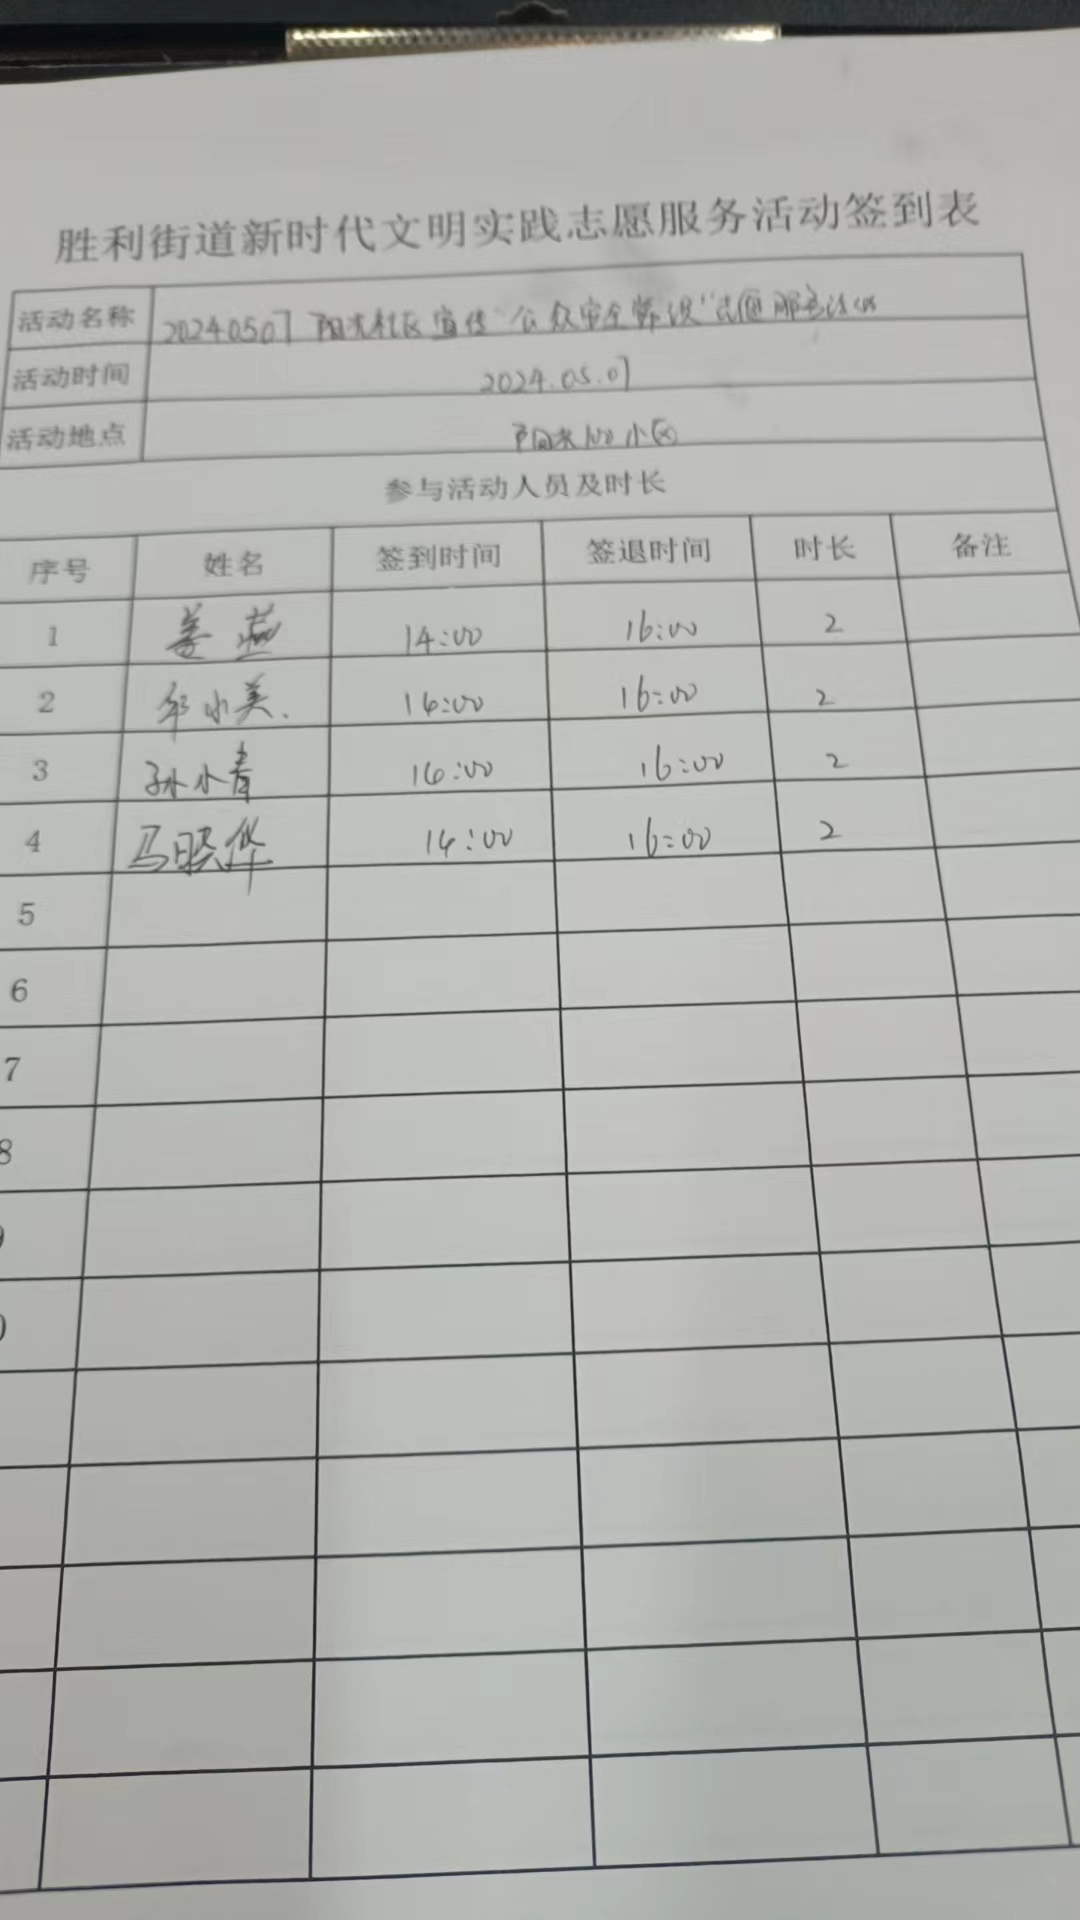 胜利街道新时代文明实践志愿服务活动签到表
活动名称 20240507 阳光社区宣传"公众安全常识"志愿服务活动
活动时间 2024.05.07
活动地点 阳光100小区
参与活动人员及时长
序号 姓名 签到时间 签退时间 时长 备注
1 姜燕 14:00 16:00 2
2 小美 14:00 16:00 2
3 孙小青 14:00 16:00 2
4 马晓华 14:00 16:00 2
5
6
7
8